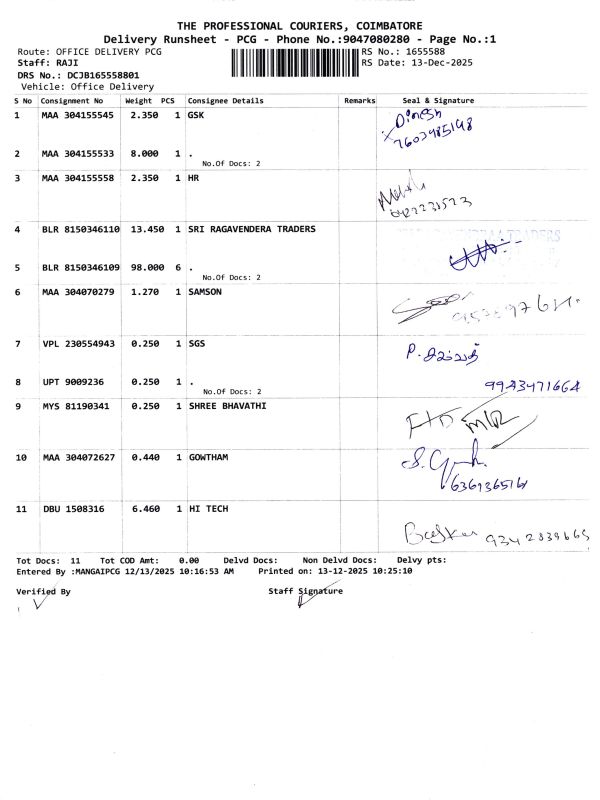 THE PROFESSIONAL COURIERS, COIMBATORE
Delivery Runsheet - PCG - Phone No.:9047080280 - Page No.:1
Route: OFFICE DELIVERY PCG RS No.: 1655588
Staff: RAJI RS Date: 13-Dec-2025
DRS No.: DCJB165558801
Vehicle: Office Delivery
S No Consignment No Weight PCS Consignee Details Remarks Seal & Signature
1 MAA 304155545 2.350 1 GSK Dinesh
7603985148
2 MAA 304155533 8.000 1 .
No.Of Docs: 2
3 MAA 304155558 2.350 1 HR
4 BLR 8150346110 13.450 1 SRI RAGAVENDERA TRADERS
5 BLR 8150346109 98.000 6 .
No.Of Docs: 2
6 MAA 304070279 1.270 1 SAMSON
7 VPL 230554943 0.250 1 SGS
8 UPT 9009236 0.250 1 . 9943471664
No.Of Docs: 2
9 MYS 81190341 0.250 1 SHREE BHAVATHI
10 MAA 304072627 0.440 1 GOWTHAM
11 DBU 1508316 6.460 1 HI TECH
Baskar 9342839665
Tot Docs: 11 Tot COD Amt: 0.00 Delvd Docs: Non Delvd Docs: Delvy pts:
Entered By :MANGAIPCG 12/13/2025 10:16:53 AM Printed on: 13-12-2025 10:25:10
Verified By Staff Signature